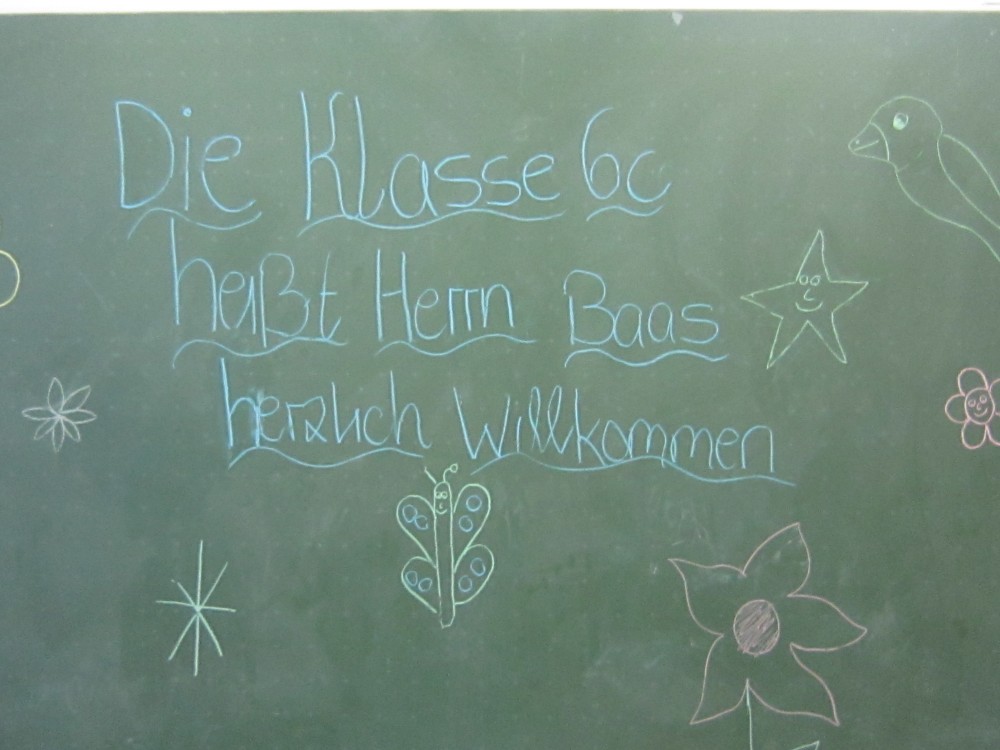 Die Klasse 6c
heißt Herrn Baas
herzlich Willkommen